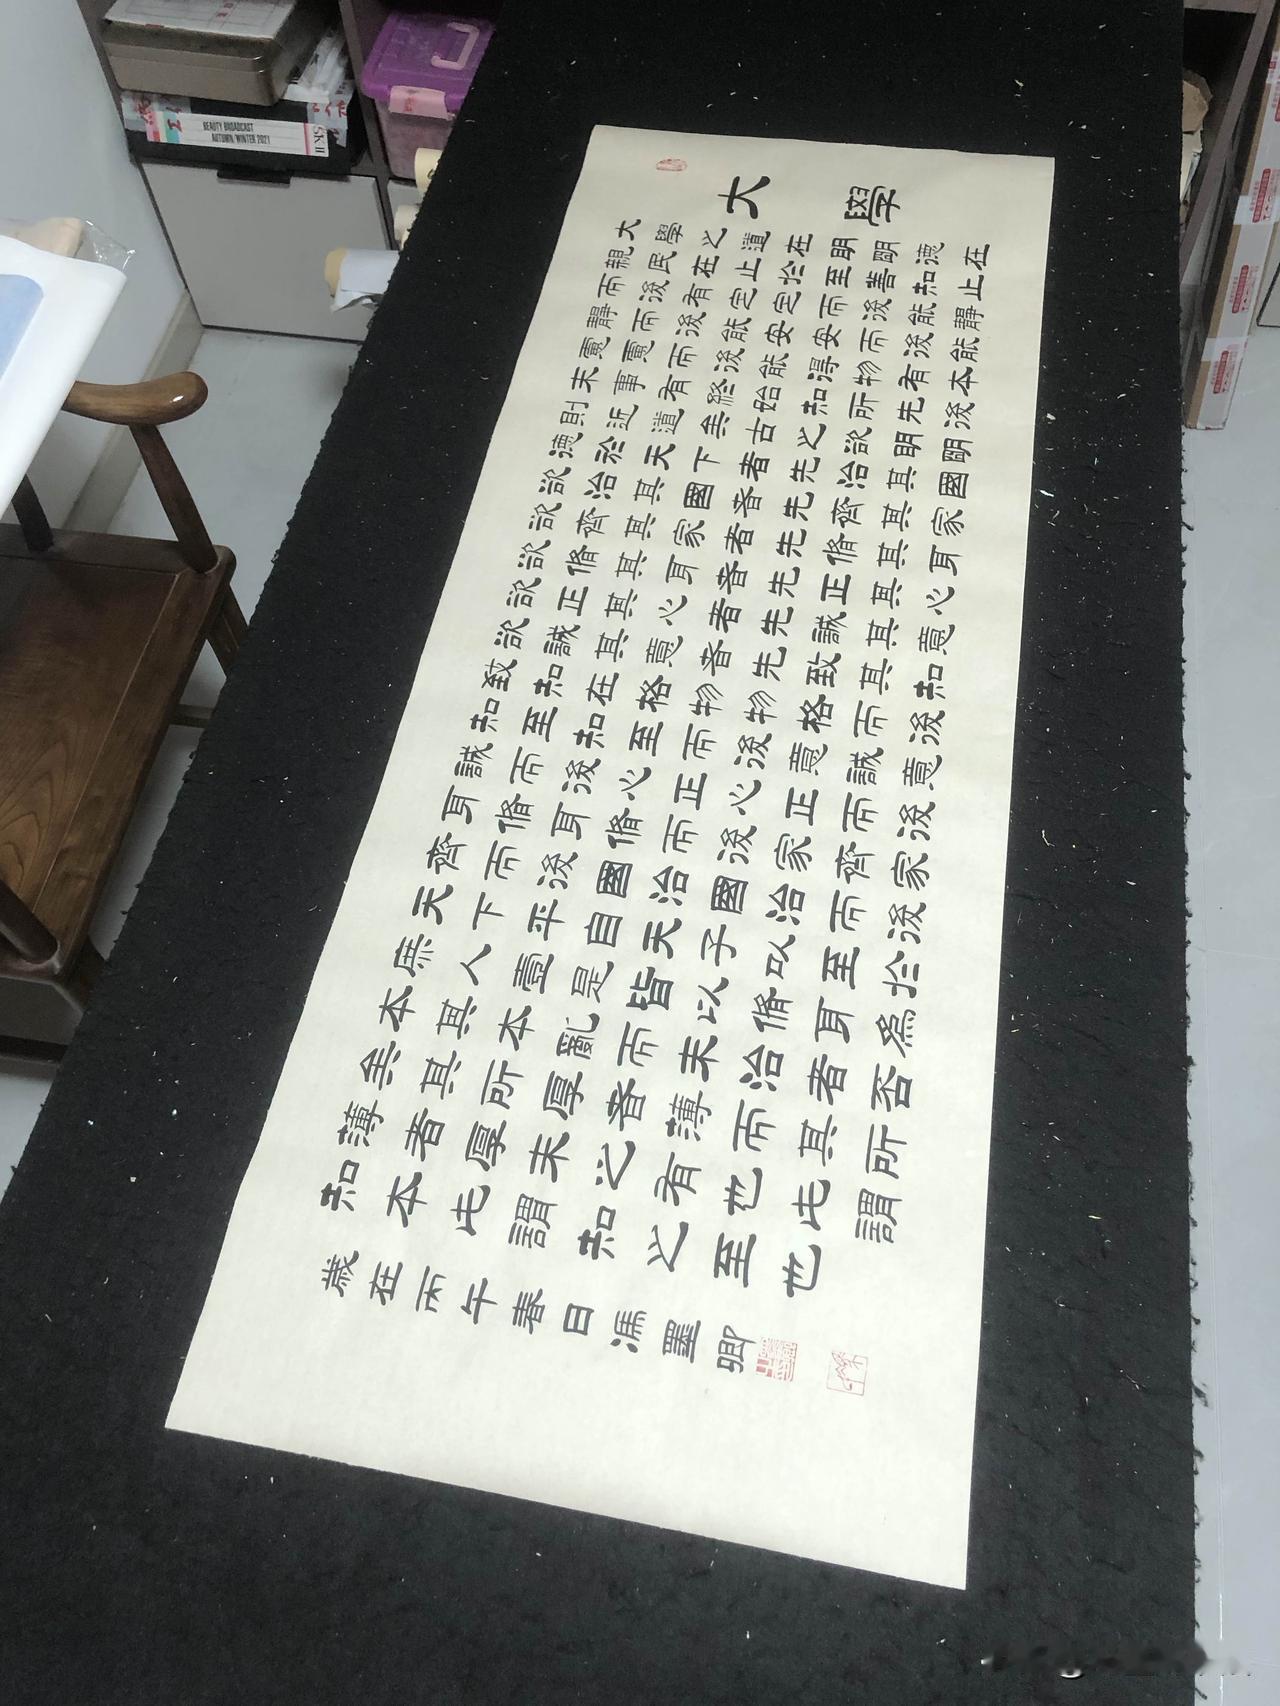 大學
大學之道在明明德在
親民在止於至善知止
而後有定定而後能靜
靜而後能安安而後能
慮慮而後能得物有本
末事有終始知所先後
則近道矣古之欲明明
德於天下者先治其國
欲治其國者先齊其家
欲齊其家者先脩其身
欲脩其身者先正其心
欲正其心者先誠其意
欲誠其意者先致其知
致知在格物物格而後
知至知至而後意誠意
誠而後心正心正而後
身脩身脩而後家齊家
齊而後國治國治而後
天下平自天子以至於
庶人壹是皆以脩身為
本其本亂而末治者否
矣其所厚者薄而其所
薄者厚未之有也此謂
知本此謂知之至也
歲在丙午春日馮墨卿
BEAUTY BROADCAST
AUTUMN/WINTER 2021
SK II